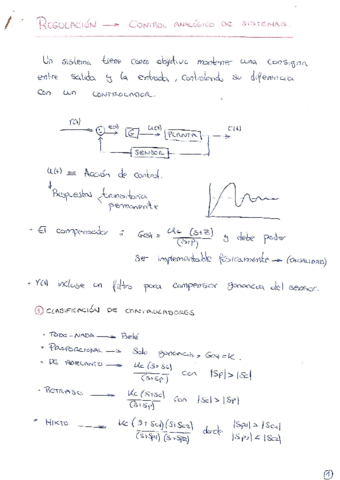 REGULACIÓN → CONTROL ANALÓGICO DE SISTEMAS.
Un sistema tiene como objetivo mantener una consigna
entre salida y la entrada, controlando su diferencia
con un CONTROLADOR.
r(t) e(t) G u(t) PLANTA c(t)
SENSOR
u(t) ≡ Acción de control.
Respuestas transitoria
permanente
- El compensador: G(s) = Kc (s+z) / (s+p) y debe poder
ser implementable físicamente →
- r(t) incluye un filtro para compensar ganancia del sensor.
① CLASIFICACIÓN DE CONTROLADORES
· TODO-NADA → Relé
· PROPORCIONAL → Solo ganancia = G(s)=K.
· DE ADELANTO → Kc (s+sc) / (s+sp) con |sp| > |sc|
· RETRASO → Kc (s+sc) / (s+sp) con |sc| > |sp|
· MIXTO → Kc (s+sc1)(s+sc2) / (s+sp1)(s+sp2) donde |sp1| > |sc1|
|sp2| < |sc2|
①